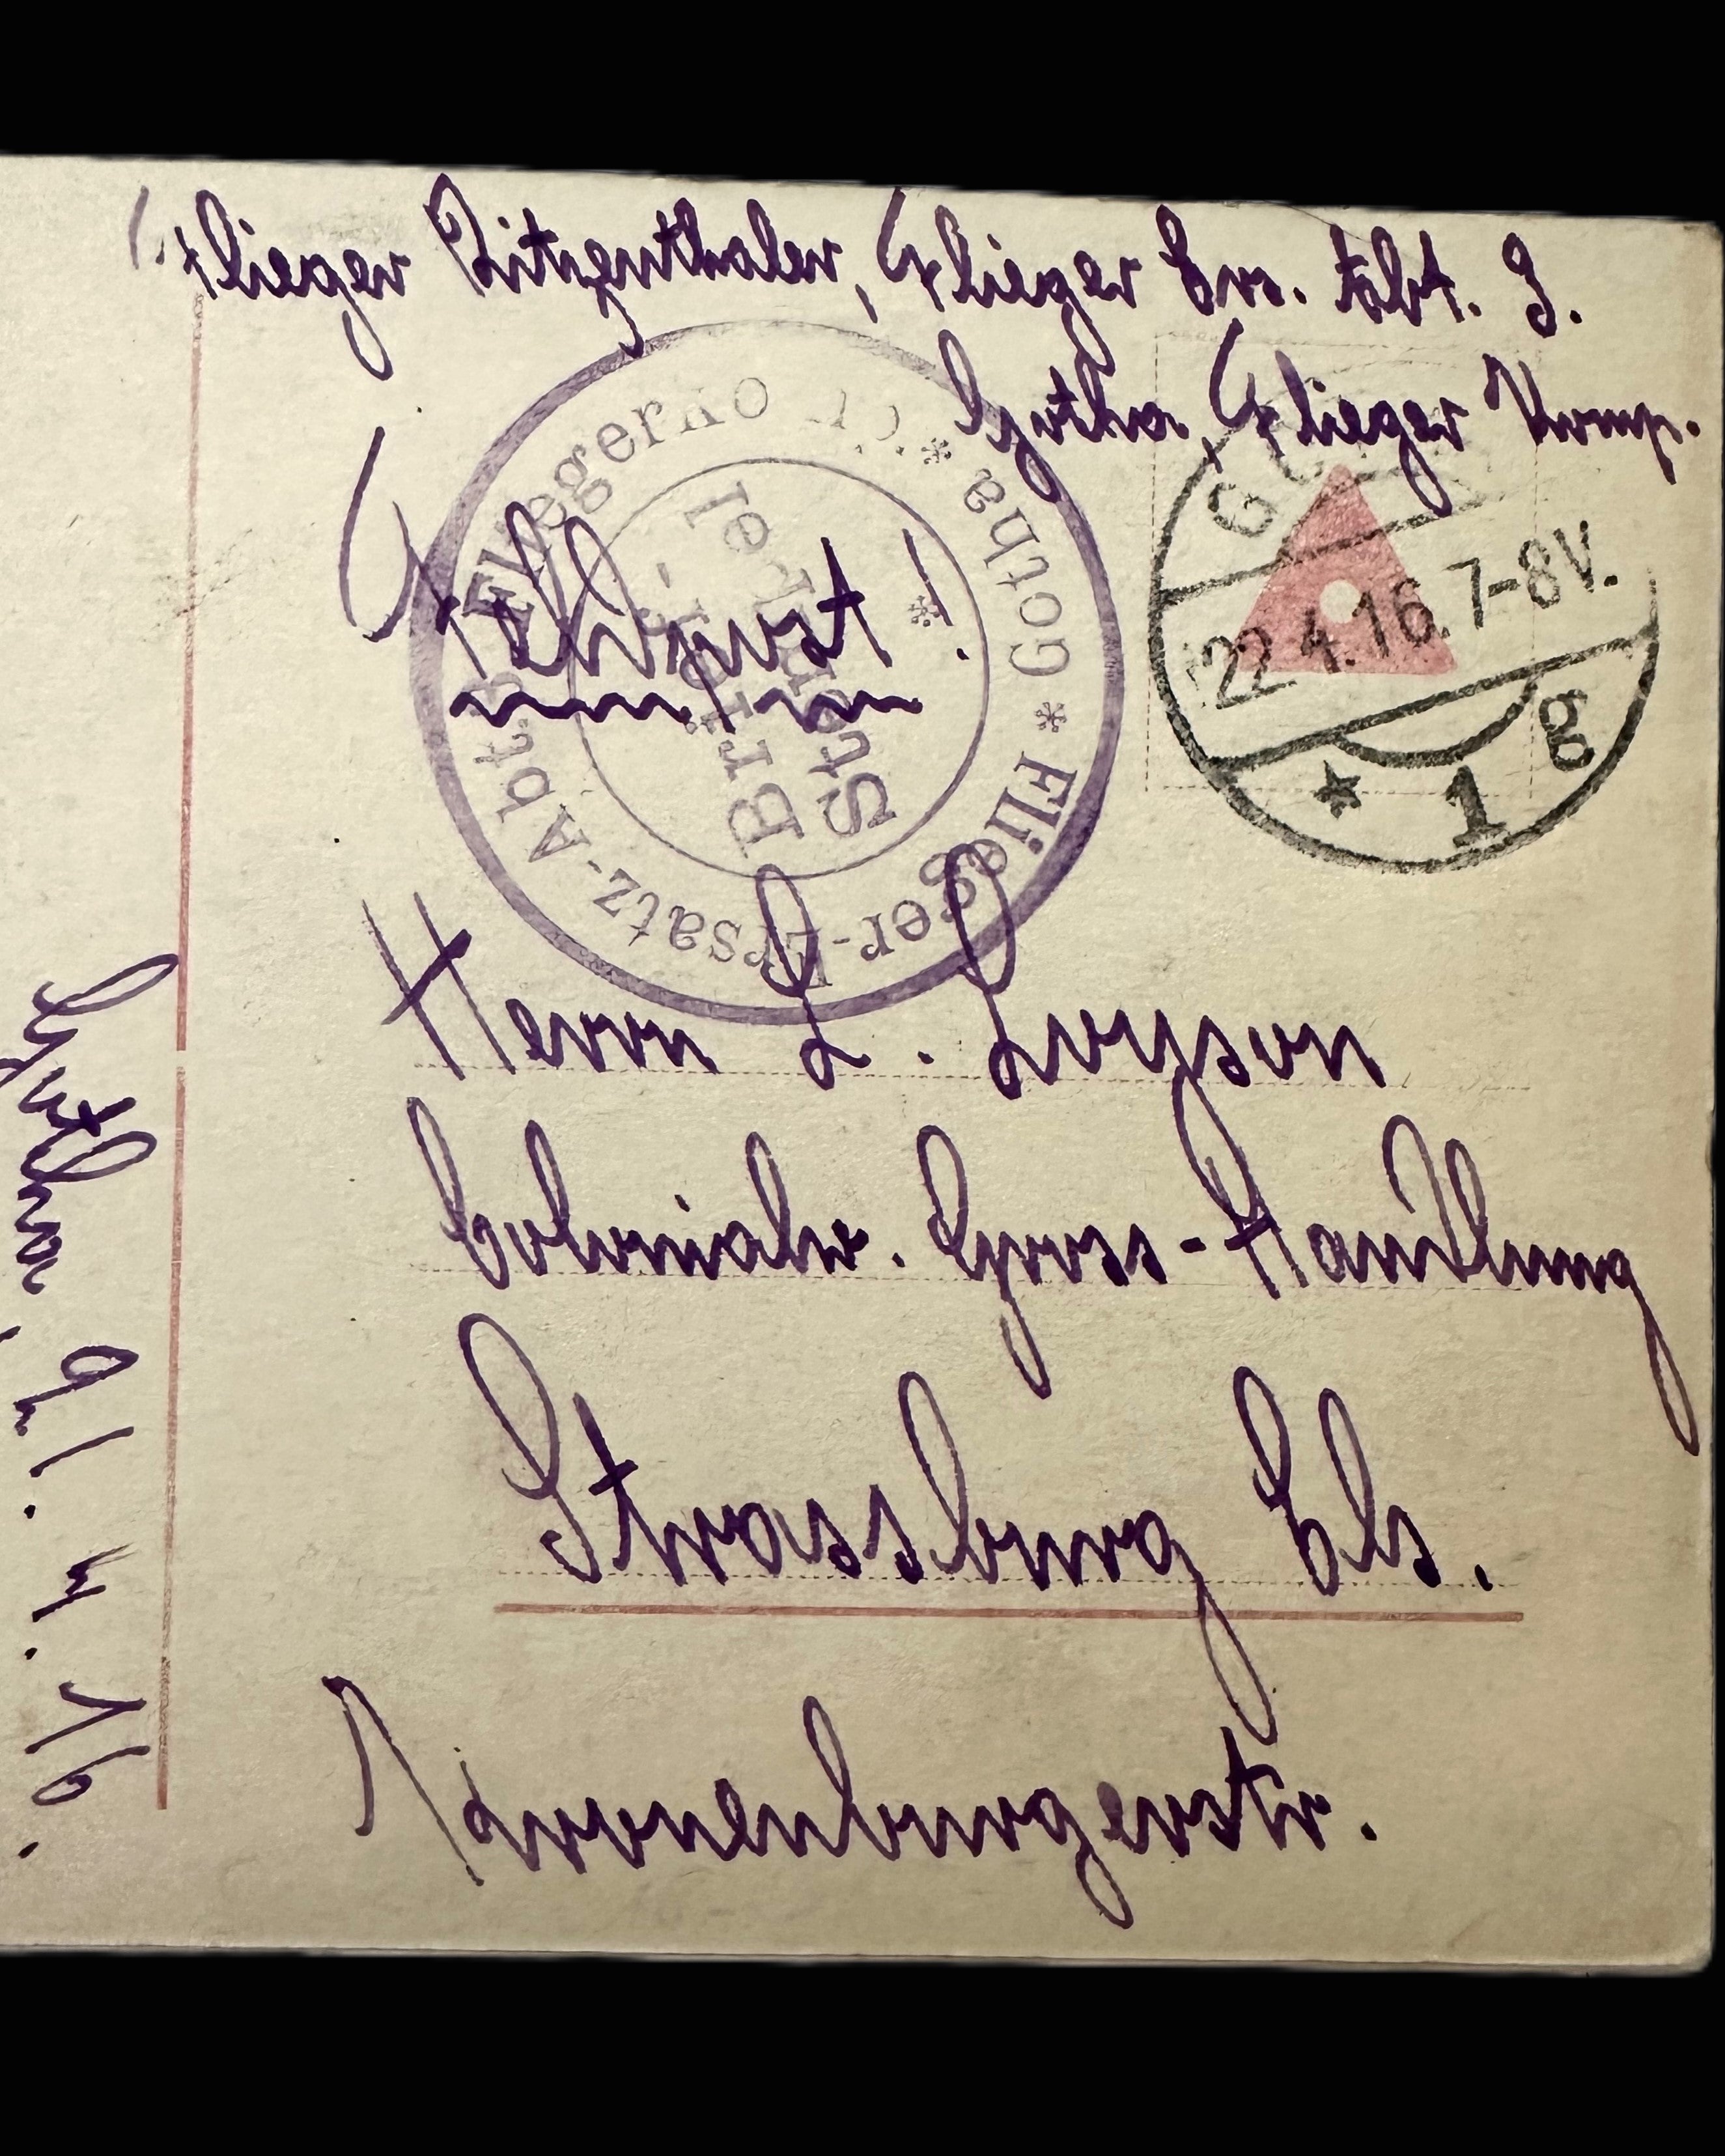 Flieger Ritzenthaler, Flieger Ers. Abt. 3.
Gotha, Flieger Komp.
Feldpost!
Flieger-Ersatz-Abt. 3 * Gotha *
Brief-
Stempel
22.4.16. 7-8V.
* 1 g
Herrn L. Loyson
Colonialw. Gross-Handlung
Strassburg Els.
Kronenburgerstr.
Gotha, 21.4.16.